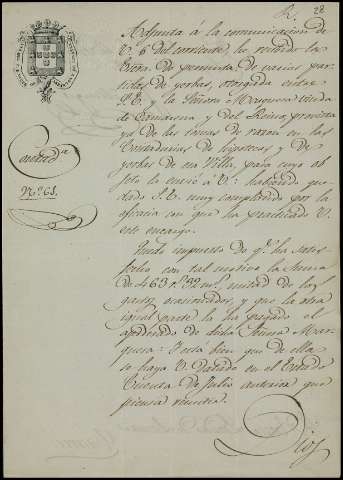 R. 28
Adjunta á la comunicacion de
V. 6 del corriente, he recibido la
Escra. de permuta de varias par-
tidas de yerbas, otorgada entre
S.E. y la Señora Marquesa viuda
de Camarena y del Reino, provista
ya de las tomas de razon en las
Contadurias de hipotecas y de
yerbas de esa Villa, para cuyo ob-
jeto la envié á V.: habiendo que-
dado S.E. muy complacido por la
eficacia con que ha practicado V.
este encargo.
Contad.a
N.º 65.
Quedo impuesto de q.e ha satis-
fecho con tal motivo la suma
de 463 r.s 22 m.s, mitad de los
gastos ocasionados, y que la otra
igual parte la ha pagado el
apoderado de dicha Señora Mar-
quesa: Y está bien que de ella
se haya V. datado en el Estado
Cuenta de Julio anterior que
piensa remitir.
Dios